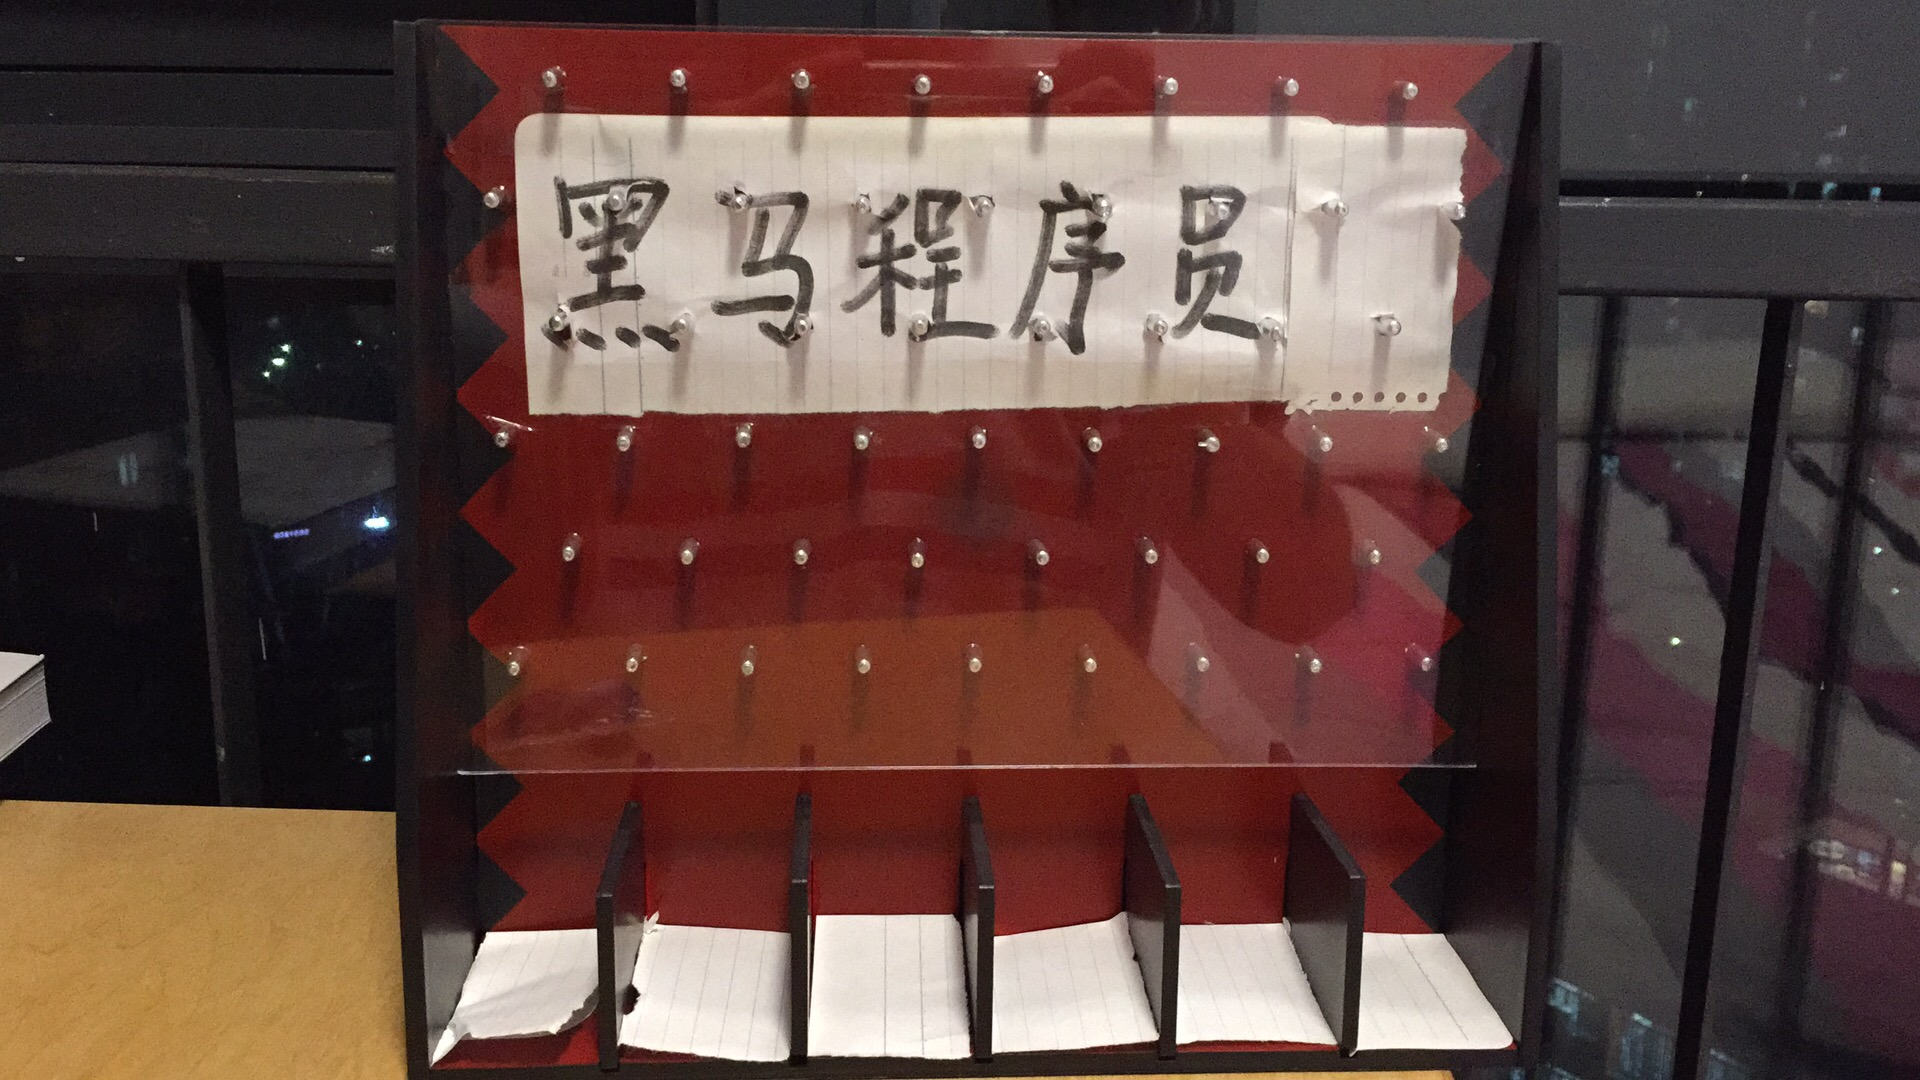 黑马程序员